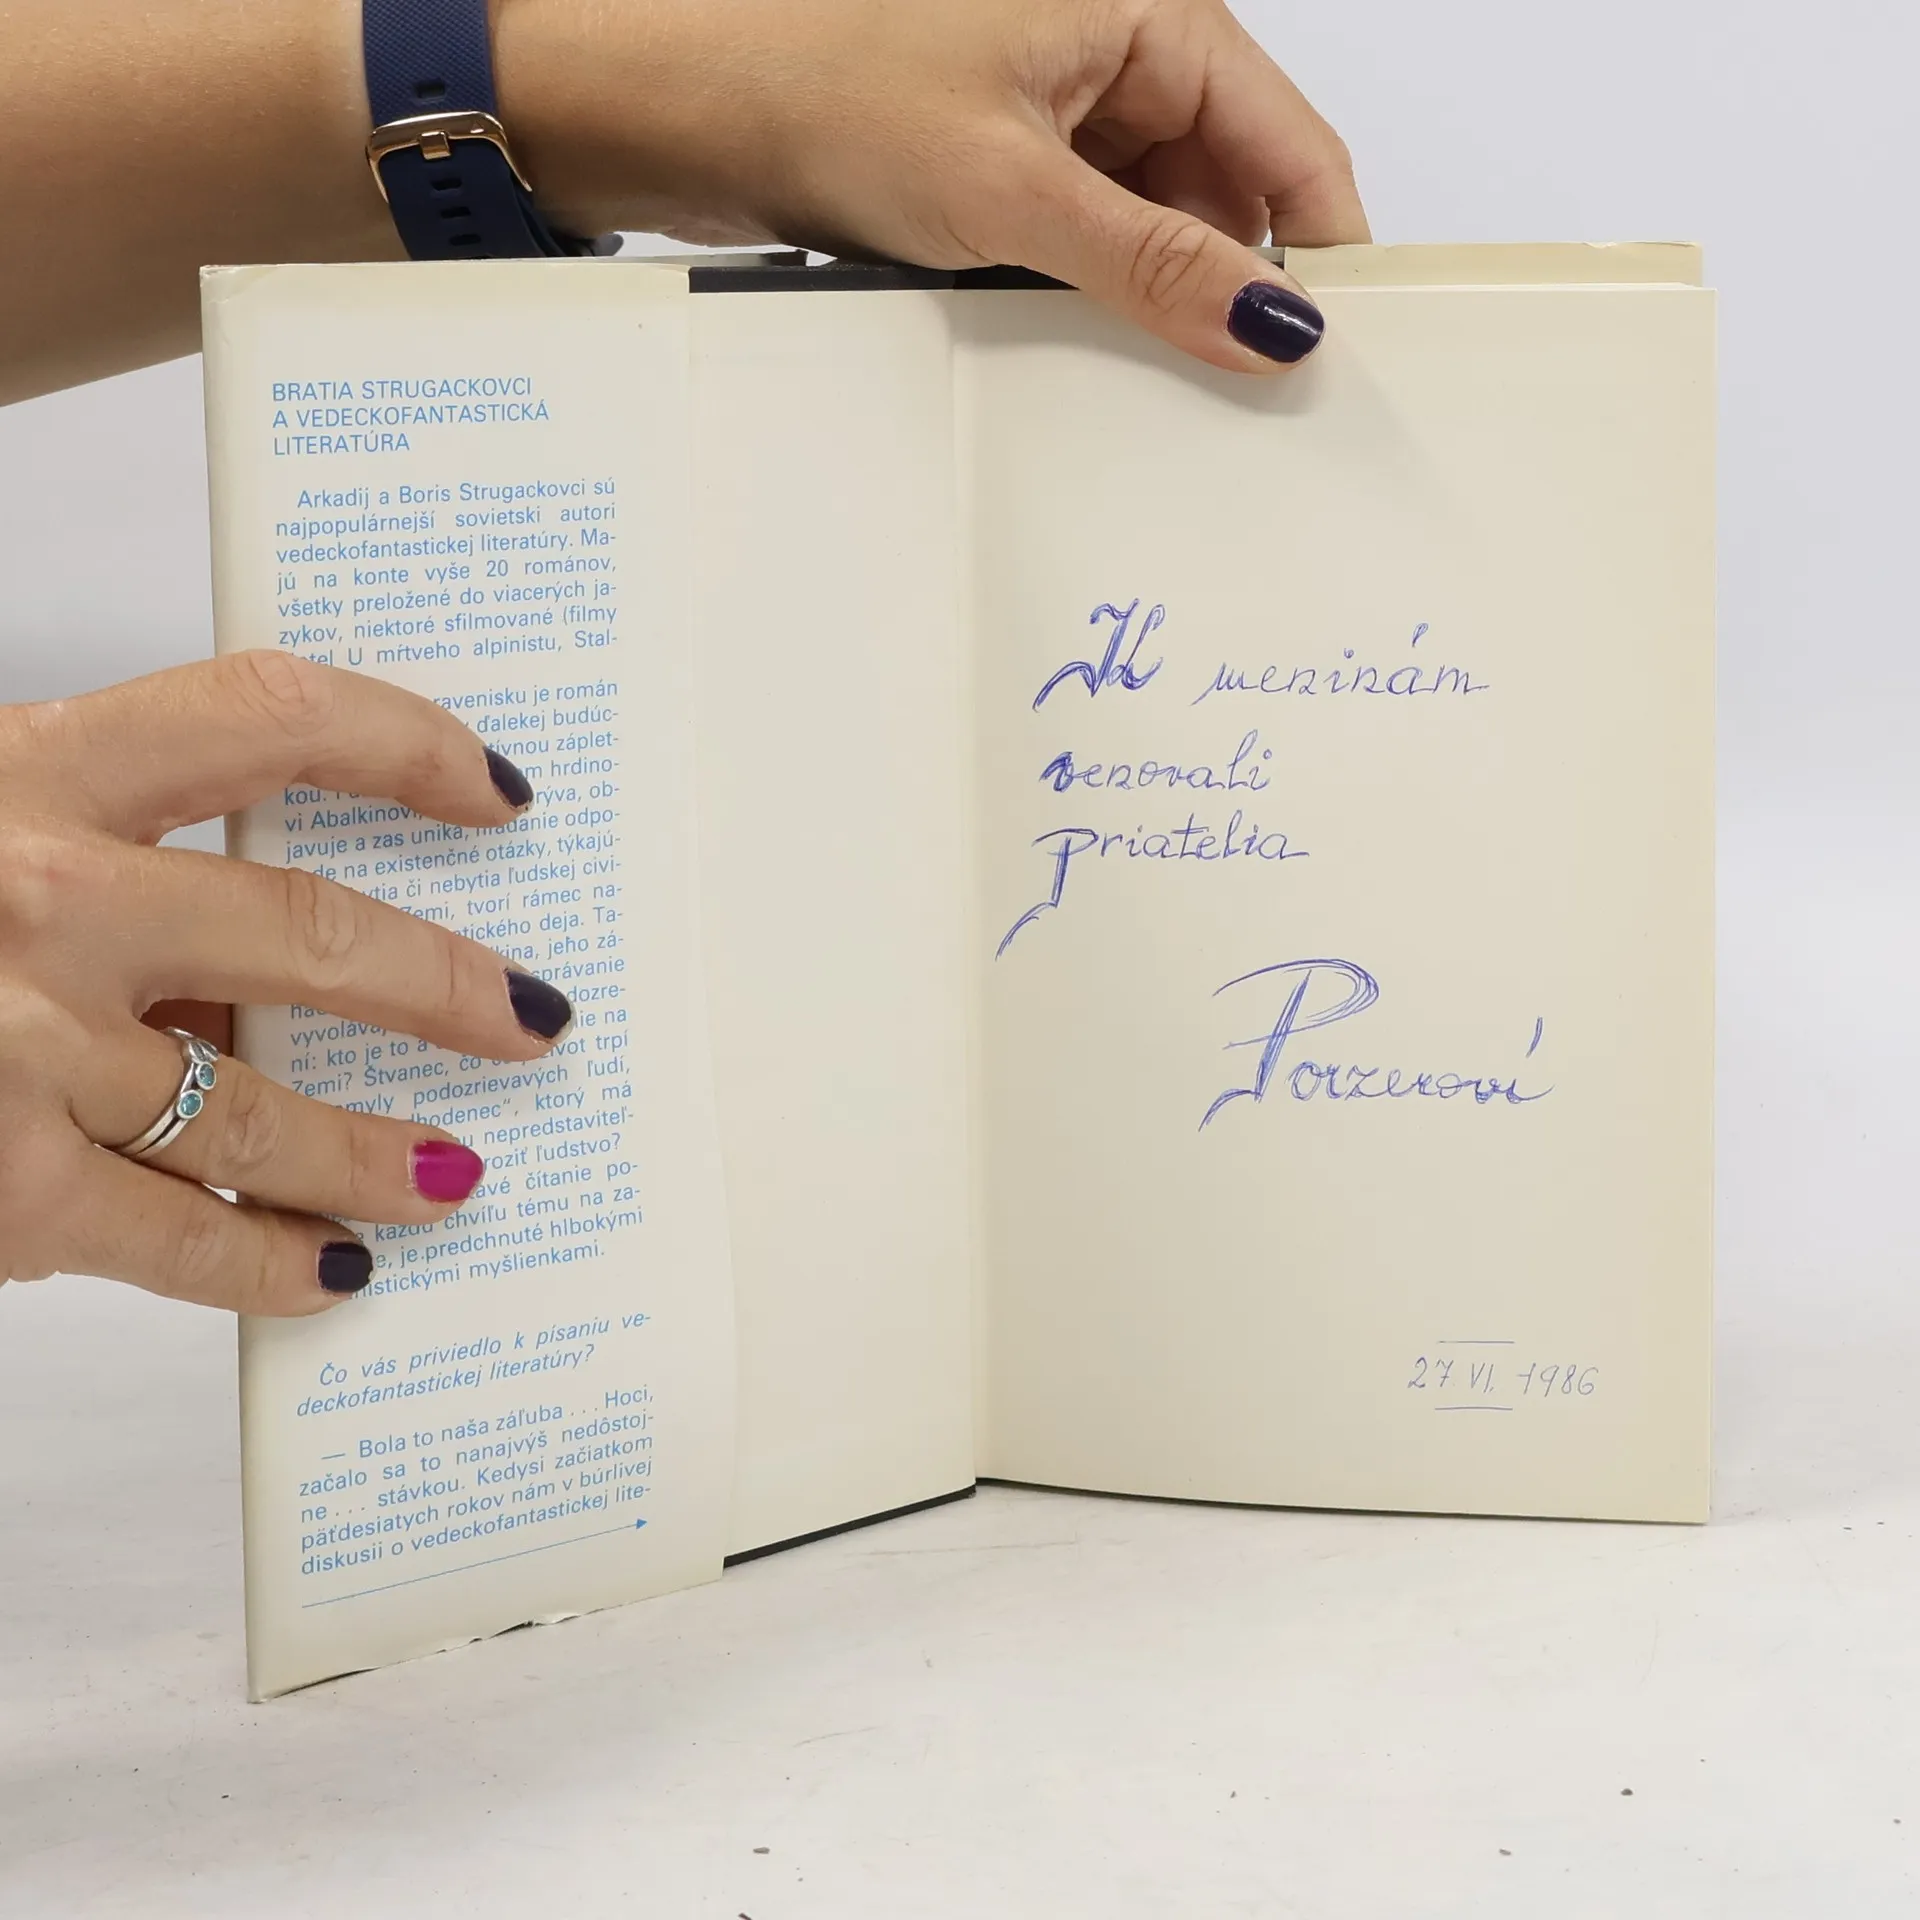 BRATIA STRUGACKOVCI
A VEDECKOFANTASTICKÁ
LITERATÚRA
Arkadij a Boris Strugackovci sú
najpopulárnejší sovietski autori
vedeckofantastickej literatúry. Ma-
jú na konte vyše 20 románov,
všetky preložené do viacerých ja-
zykov, niektoré sfilmované (filmy
U mŕtveho alpinistu, Stal-
je román
ďalekej budúc-
záplet-
hrdino-
kou. ob-
vi
javuje a zas uniká, hľadanie odpo-
na existenčné otázky, týkajú-
či nebytia ľudskej civi-
Zemi, tvorí rámec na-
deja. Ta-
jeho zá-
správanie
na
ní: kto je to a život trpí
Zemi? Štvanec, čo
podozrievavých ľudí,
ktorý má
nepredstaviteľ-
ľudstvo?
čítanie po-
každú chvíľu tému na za-
je predchnuté hlbokými
myšlienkami.
Čo vás priviedlo k písaniu ve-
deckofantastickej literatúry?
— Bola to naša záľuba . . . Hoci,
začalo sa to nanajvýš nedôstoj-
ne . . . stávkou. Kedysi začiatkom
päťdesiatych rokov nám v búrlivej
diskusii o vedeckofantastickej lite-
K meninám
venovali
priatelia
Porzeroví
27. VI. 1986